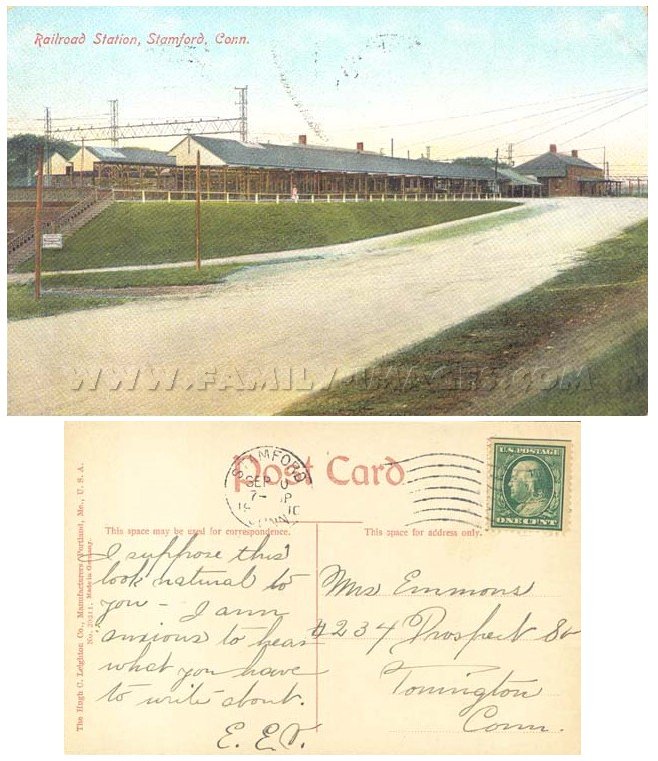 Railroad Station, Stamford, Conn.
WWW.FAMILY-IMAGES.COM
The Hugh C. Leighton Co., Manufacturers, Portland, Me., U. S. A.
No. 20211. Made in Germany.
Post Card
STAMFORD
SEP
7-
CONN
U.S. POSTAGE
ONE CENT
This space may be used for correspondence.
This space for address only.
I suppose this
look natural to
you - I am
anxious to hear
what you have
to write about.
Mrs Emmons
#234 Prospect St
Torrington
Conn.